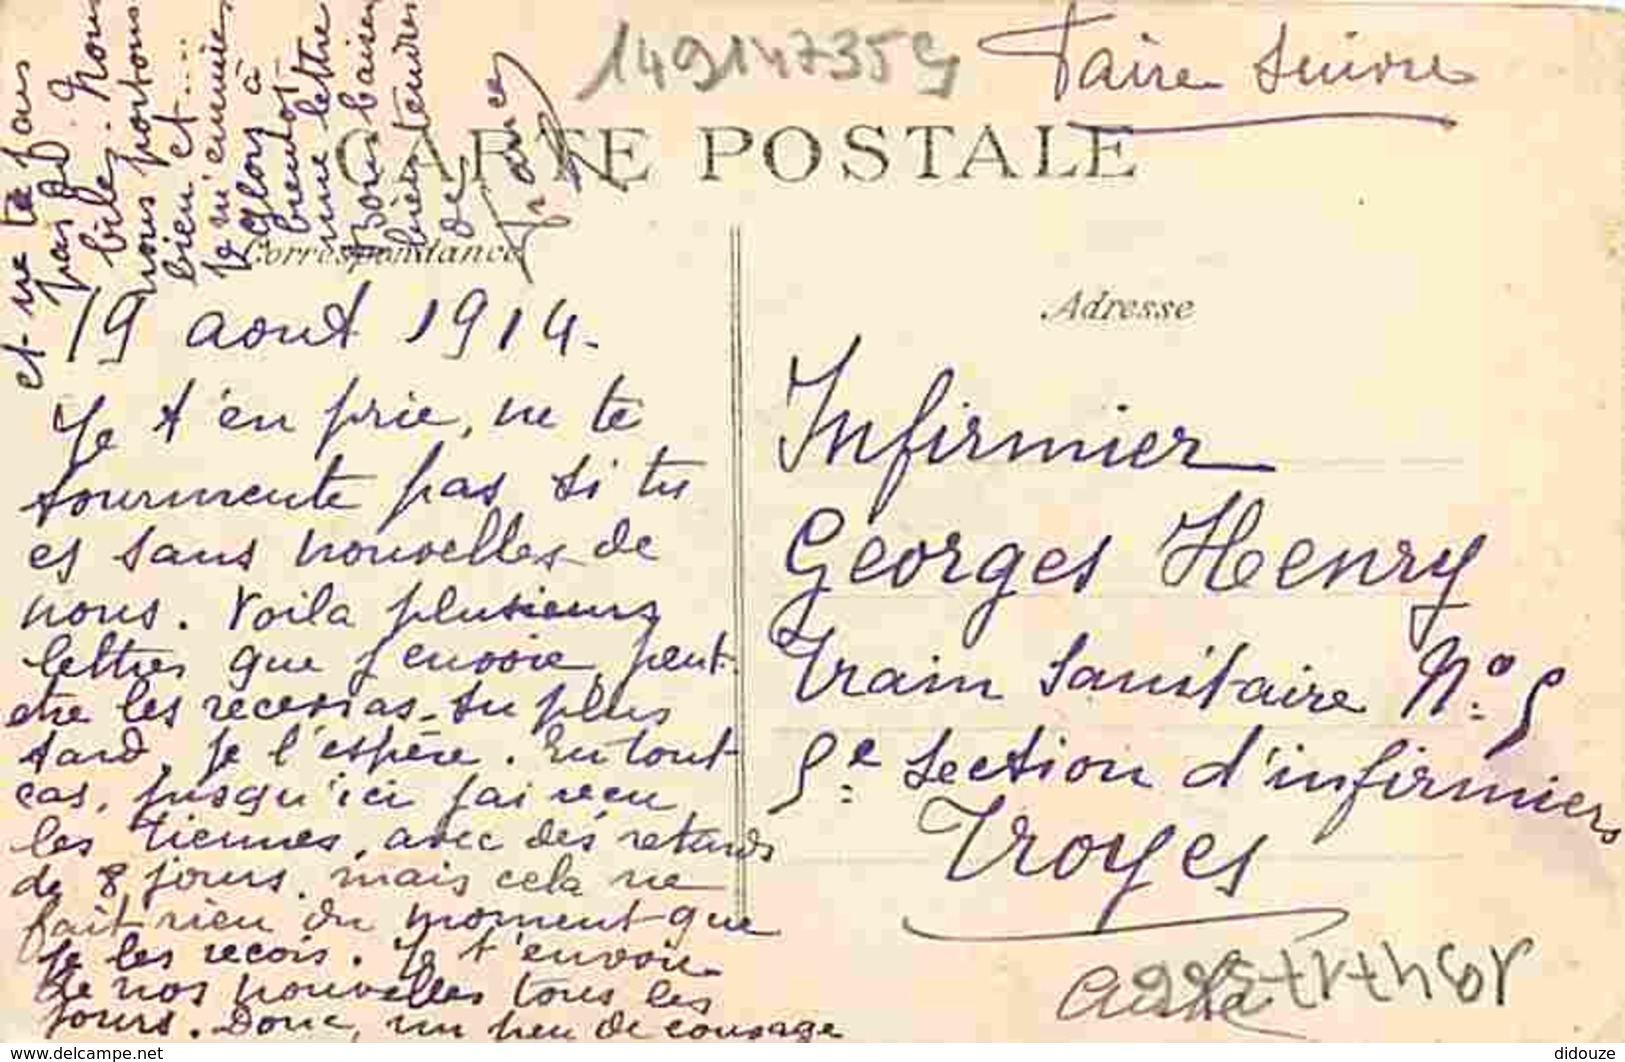 Faire suivre
CARTE POSTALE
Correspondance
Adresse
19 aout 1914.
Je t'en prie, ne te
tourmente pas si tu
es sans nouvelles de
nous. Voila plusieurs
lettres que j'envoie, peut-
etre les recevras-tu plus
tard, je l'espère. En tout
cas, jusqu'ici j'ai recu
les tiennes, avec des retards
de 8 jours, mais cela ne
fait rien du moment que
je les recois. Je t'envoie
de nos nouvelles tous les
jours. Donc, un peu de courage
et ne te fais
pas de
bile. Nous
nous portons
bien et....
je m'ennuie
à
bientot
une lettre
Bons baisers
bien tendres
de
France
Infirmier
Georges Henry
Train Sanitaire No. 5
5e section d'infirmiers
Troyes
Aube
1491473559
delcampe.net
didouze